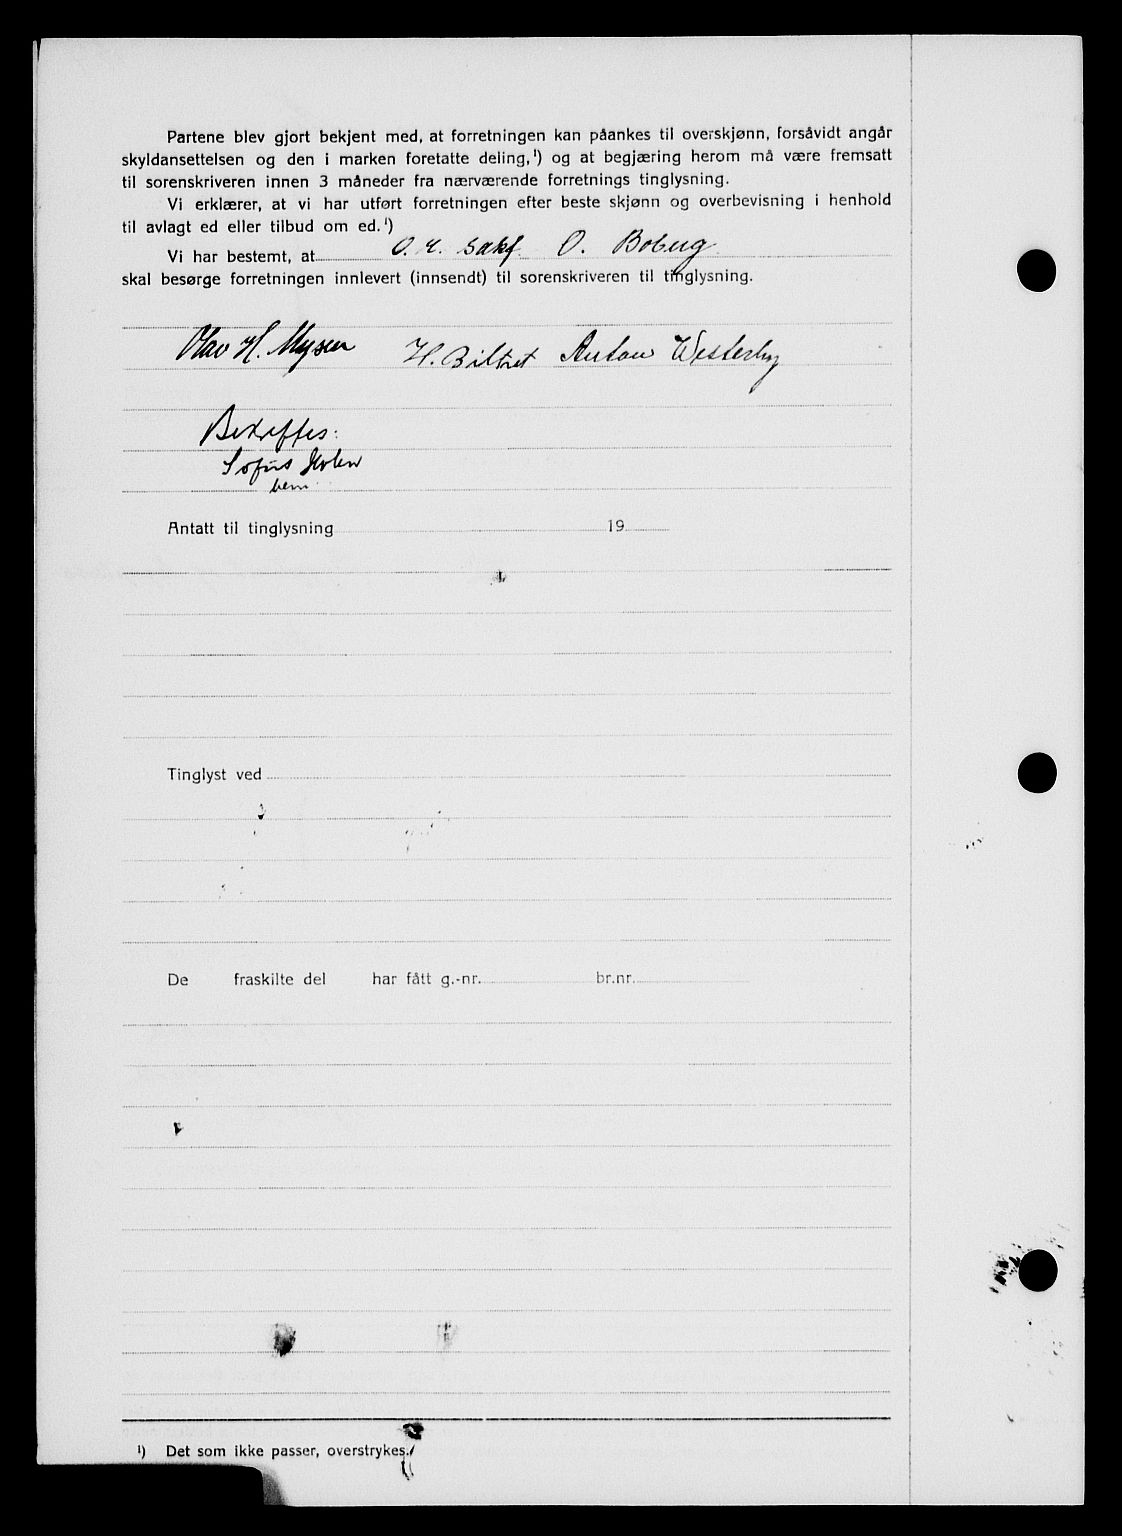 Partene blev gjort bekjent med, at forretningen kan påankes til overskjønn, forsåvidt angår
skyldansettelsen og den i marken foretatte deling,¹) og at begjæring herom må være fremsatt
til sorenskriveren innen 3 måneder fra nærværende forretnings tinglysning.
Vi erklærer, at vi har utført forretningen efter beste skjønn og overbevisning i henhold
til avlagt ed eller tilbud om ed.¹)
Vi har bestemt, at O. r. sakf. O. Boberg
skal besørge forretningen innlevert (innsendt) til sorenskriveren til tinglysning.
Olav H. Mysen H. Biltzet Anton Westerby
Bekreftes:
Sofus Holen
Antatt til tinglysning 19
Tinglyst ved
De fraskilte del har fått g.-nr. br.nr.
¹) Det som ikke passer, overstrykes.